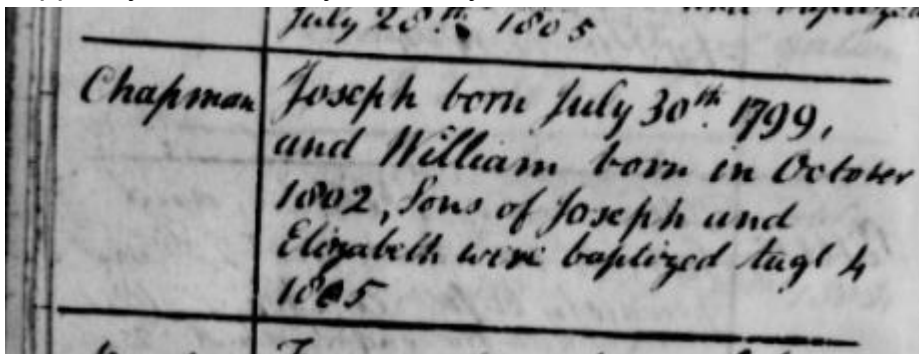 July 28th 1805
Chapman
Joseph born July 30th 1799,
and William born in October
1802, Sons of Joseph and
Elizabeth were baptized Augt 4
1805